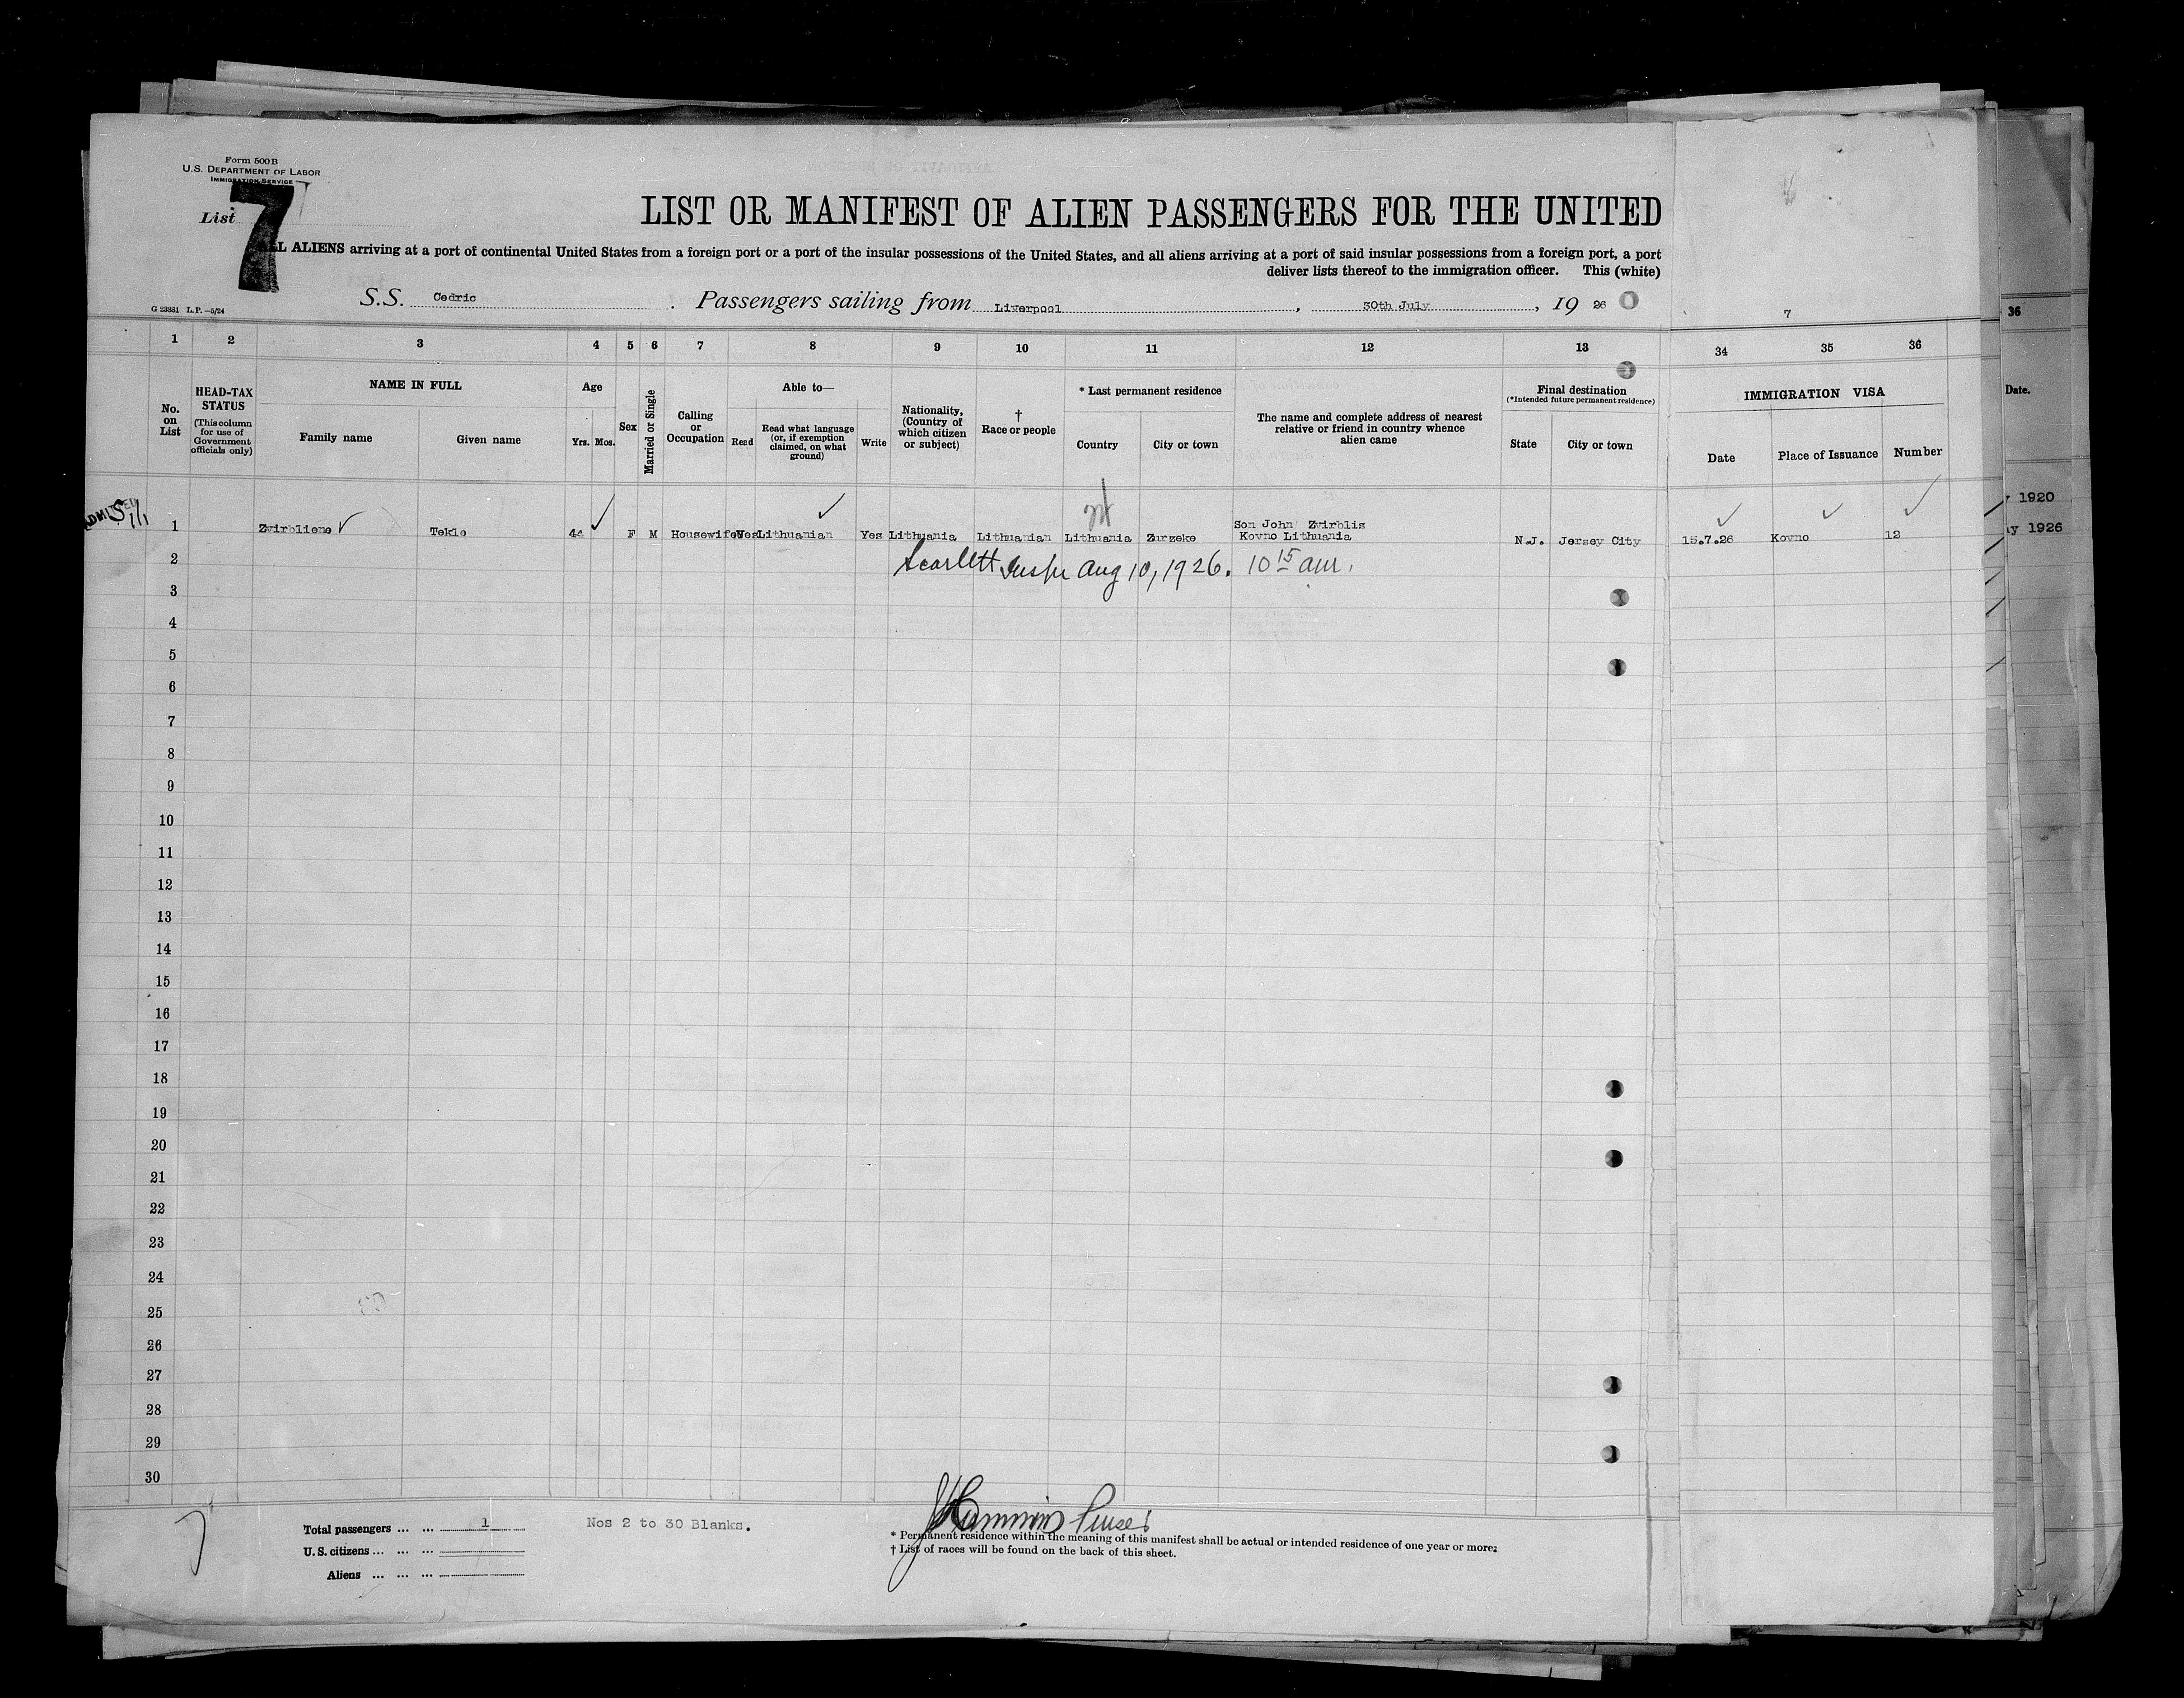 Form 500 B
U.S. DEPARTMENT OF LABOR
IMMIGRATION SERVICE
List 7
LIST OR MANIFEST OF ALIEN PASSENGERS FOR THE UNITED
ALL ALIENS arriving at a port of continental United States from a foreign port or a port of the insular possessions of the United States, and all aliens arriving at a port of said insular possessions from a foreign port, a port
deliver lists thereof to the immigration officer. This (white)
S.S. Cedric. Passengers sailing from Liverpool, 30th July, 19 26
G 23881 L.P.—5/24
7
36
1 2 3 4 5 6 7 8 9 10 11 12 13 34 35 36
No. on List
HEAD-TAX STATUS
(This column for use of Government officials only)
NAME IN FULL
Family name Given name
Age
Yrs. Mos.
Sex
Married or Single
Calling or Occupation
Able to—
Read
Read what language (or, if exemption claimed, on what ground)
Write
Nationality, (Country of which citizen or subject)
† Race or people
* Last permanent residence
Country City or town
The name and complete address of nearest relative or friend in country whence alien came
Final destination
(*Intended future permanent residence)
State City or town
IMMIGRATION VISA
Date Place of Issuance Number
Date.
1920
ADMITTED
S,I,
1 Zvirbliene Tekle 44 F M Housewife Yes Lithuanian Yes Lithuania Lithuanian Lithuania Zurzeke Son John Zvirblis
Kovno Lithuania N.J. Jersey City 15.7.26 Kovno 12
1926
2 Scarlett Inspr Aug 10, 1926. 10 15 am.
3
4
5
6
7
8
9
10
11
12
13
14
15
16
17
18
19
20
21
22
23
24
25
26
27
28
29
30
7
Total passengers ... ... 1
Nos 2 to 30 Blanks.
U.S. citizens ... ... ...
Aliens ... ... ...
Purser
* Permanent residence within the meaning of this manifest shall be actual or intended residence of one year or more.
† List of races will be found on the back of this sheet.